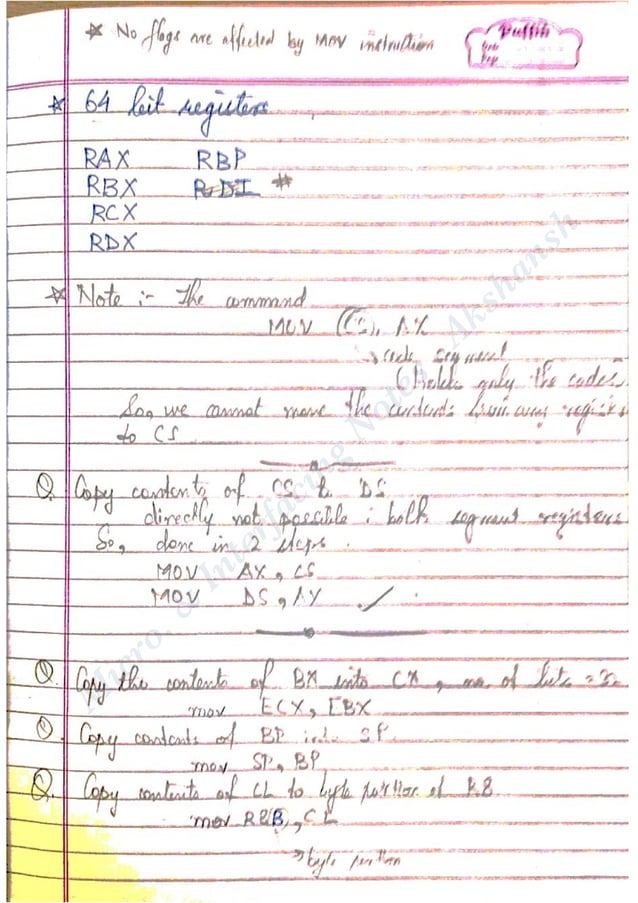 * No flags are affected by MOV instruction
* 64 bit registers
RAX RBP
RBX RDI #
RCX
RDX
* Note :- The command
MOV CS, AX
↳ code segment
(Holds only the codes
So, we cannot move the contents from any register
to CS
Q. Copy contents of CS to DS
directly not possible ∵ both segment registers
So, done in 2 steps.
MOV AX, CS
MOV DS, AX ✓
Q. Copy the contents of BX into CX, no. of bits = 32
mov ECX, EBX
Q. Copy contents of BP into SP
mov SP, BP
Q. Copy contents of CL to byte portion of R8
mov R8B, CL
→ byte portion
Micro. & Interfacing Notes Akshansh